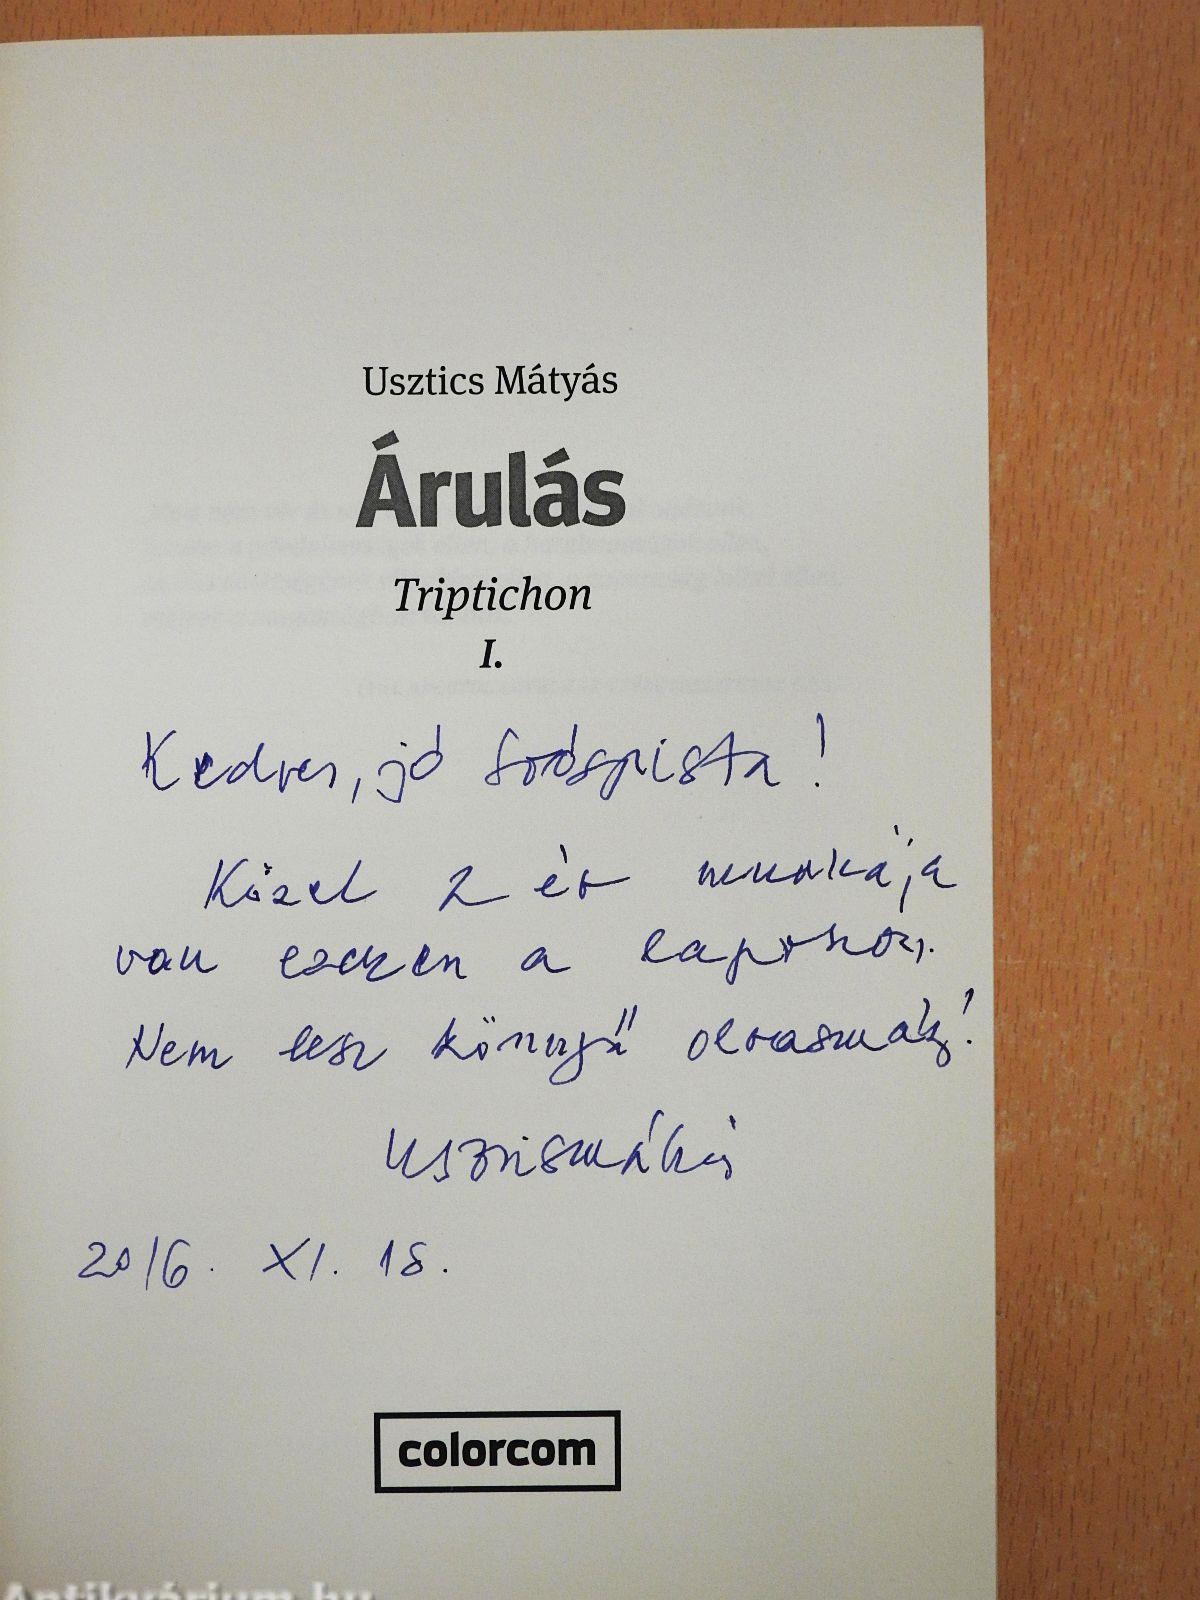 Usztics Mátyás
Árulás
Triptichon
I.
Kedves, jó Soóspista!
Közel 2 év munkája
van ezeken a lapokon.
Nem lesz könnyű olvasmány!
2016. XI. 18.
colorcom
Antikvárium.hu